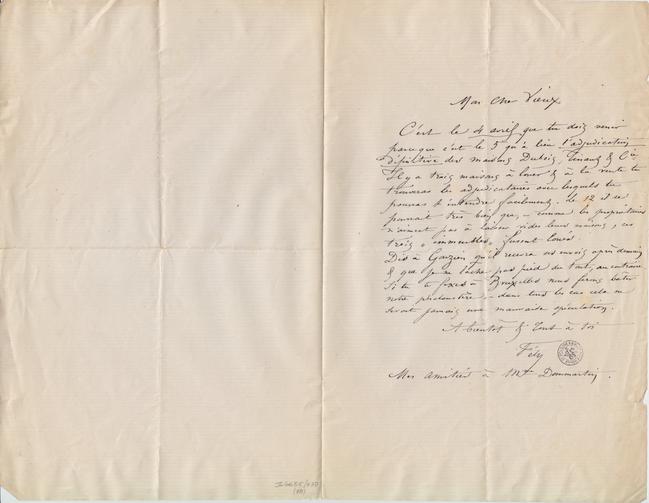 Mon Cher Vieux
C'est le 4 avril que tu dois venir
parceque c'est le 5 qu'a lieu l'adjudication
définitive des maisons Dubois, & Cie
Il y a trois maisons à louer & à la vente tu
trouveras les adjudicataires avec lesquels tu
pourras t'entendre facilement. Le 12 il se
pourrait très bien que, – comme les propriétaires
n'aiment pas à laisser vides leurs maisons, ces
trois "immeubles" fussent loués.
Dis à qu'il recevra ses envois après demain
& que je ne lâche pas pied du tout, au contraire
Si tu te fixes à Bruxelles nous ferons bâtir
notre – dans tous les cas cela ne
serait jamais une mauvaise spéculation.
A bientôt & tout à toi
Fély
Mes amitiés à Mr Dommartin.